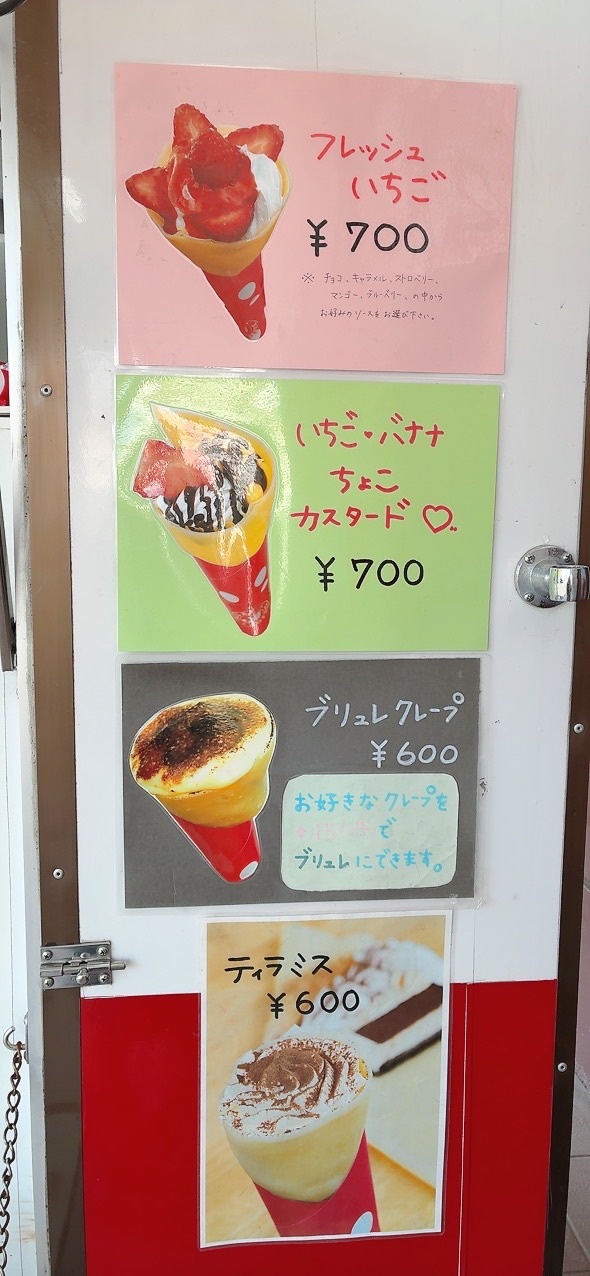 フレッシュ
いちご
¥700
※ チョコ、キャラメル、ストロベリー、
マンゴー、ブルーベリー、の中から
お好みのソースをお選び下さい。
いちご・バナナ
ちょこ
カスタード♡
¥700
ブリュレクレープ
¥600
お好きなクレープを
で
ブリュレにできます。
ティラミス
¥600